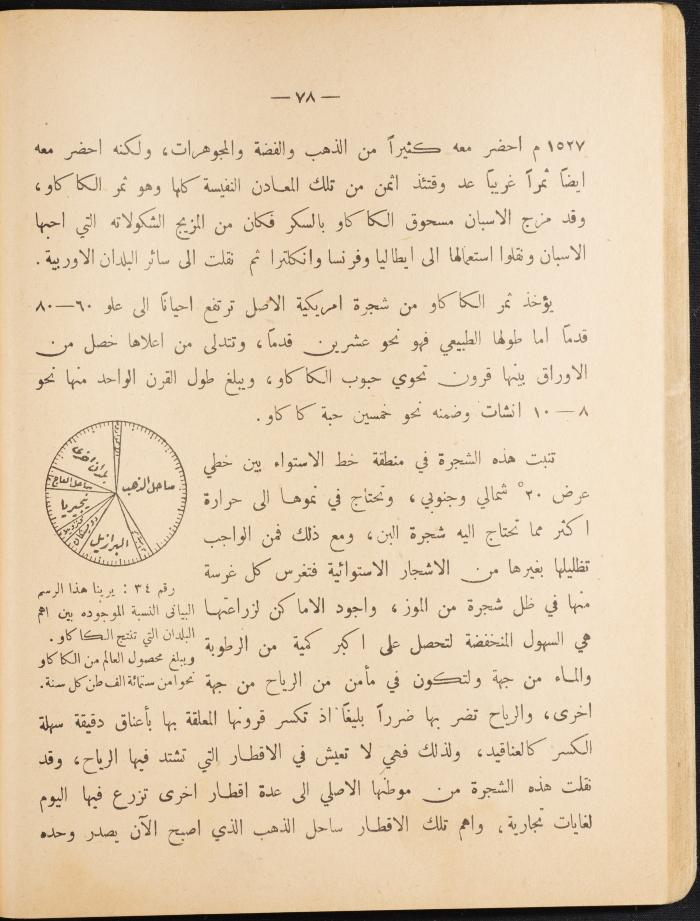 — ٧٨ —
١٥٢٧ م احضر معه كثيراً من الذهب والفضة والمجوهرات، ولكنه احضر معه
ايضاً ثمراً غريباً عد وقتئذ اثمن من تلك المعادن النفيسة كلها وهو ثمر الكاكاو،
وقد مزج الاسبان مسحوق الكاكاو بالسكر فكان من المزيج الشكولاته التي احبها
الاسبان ونقلوا استعمالها الى ايطاليا وفرنسا وانكلترا ثم نقلت الى سائر البلدان الاوربية.
يؤخذ ثمر الكاكاو من شجرة امريكية الاصل ترتفع احياناً الى علو ٦٠—٨٠
قدماً اما طولها الطبيعي فهو نحو عشرين قدماً، وتتدلى من اعلاها خصل من
الاوراق بينها قرون تحوي حبوب الكاكاو، ويبلغ طول القرن الواحد منها نحو
٨—١٠ انشات وضمنه نحو خمسين حبة كاكاو.
تنبت هذه الشجرة في منطقة خط الاستواء بين خطي
عرض ٣٠° شمالي وجنوبي، وتحتاج في نموها الى حرارة
اكثر مما تحتاج اليه شجرة البن، ومع ذلك فمن الواجب
تظليلها بغيرها من الاشجار الاستوائية فتغرس كل غرسة
منها في ظل شجرة من الموز، واجود الاماكن لزراعتها
هي السهول المنخفضة لتحصل على اكبر كمية من الرطوبة
والماء من جهة ولتكون في مأمن من الرياح من جهة
اخرى، والرياح تضر بها ضرراً بليغاً اذ تكسر قرونها المعلقة بها بأعناق دقيقة سهلة
الكسر كالعناقيد، ولذلك فهي لا تعيش في الاقطار التي تشتد فيها الرياح، وقد
نقلت هذه الشجرة من موطنها الاصلي الى عدة اقطار اخرى تزرع فيها اليوم
لغايات تجارية، واهم تلك الاقطار ساحل الذهب الذي اصبح الآن يصدر وحده
ساحل الذهب
بلدان اخرى
ساحل العاج
نيجيريا
البرازيل
رقم ٣٤ : يرينا هذا الرسم
البياني النسبة الموجوده بين اهم
البلدان التي تنتج الكاكاو.
ويبلغ محصول العالم من الكاكاو
نحوا من ستمائة الف طن كل سنة.